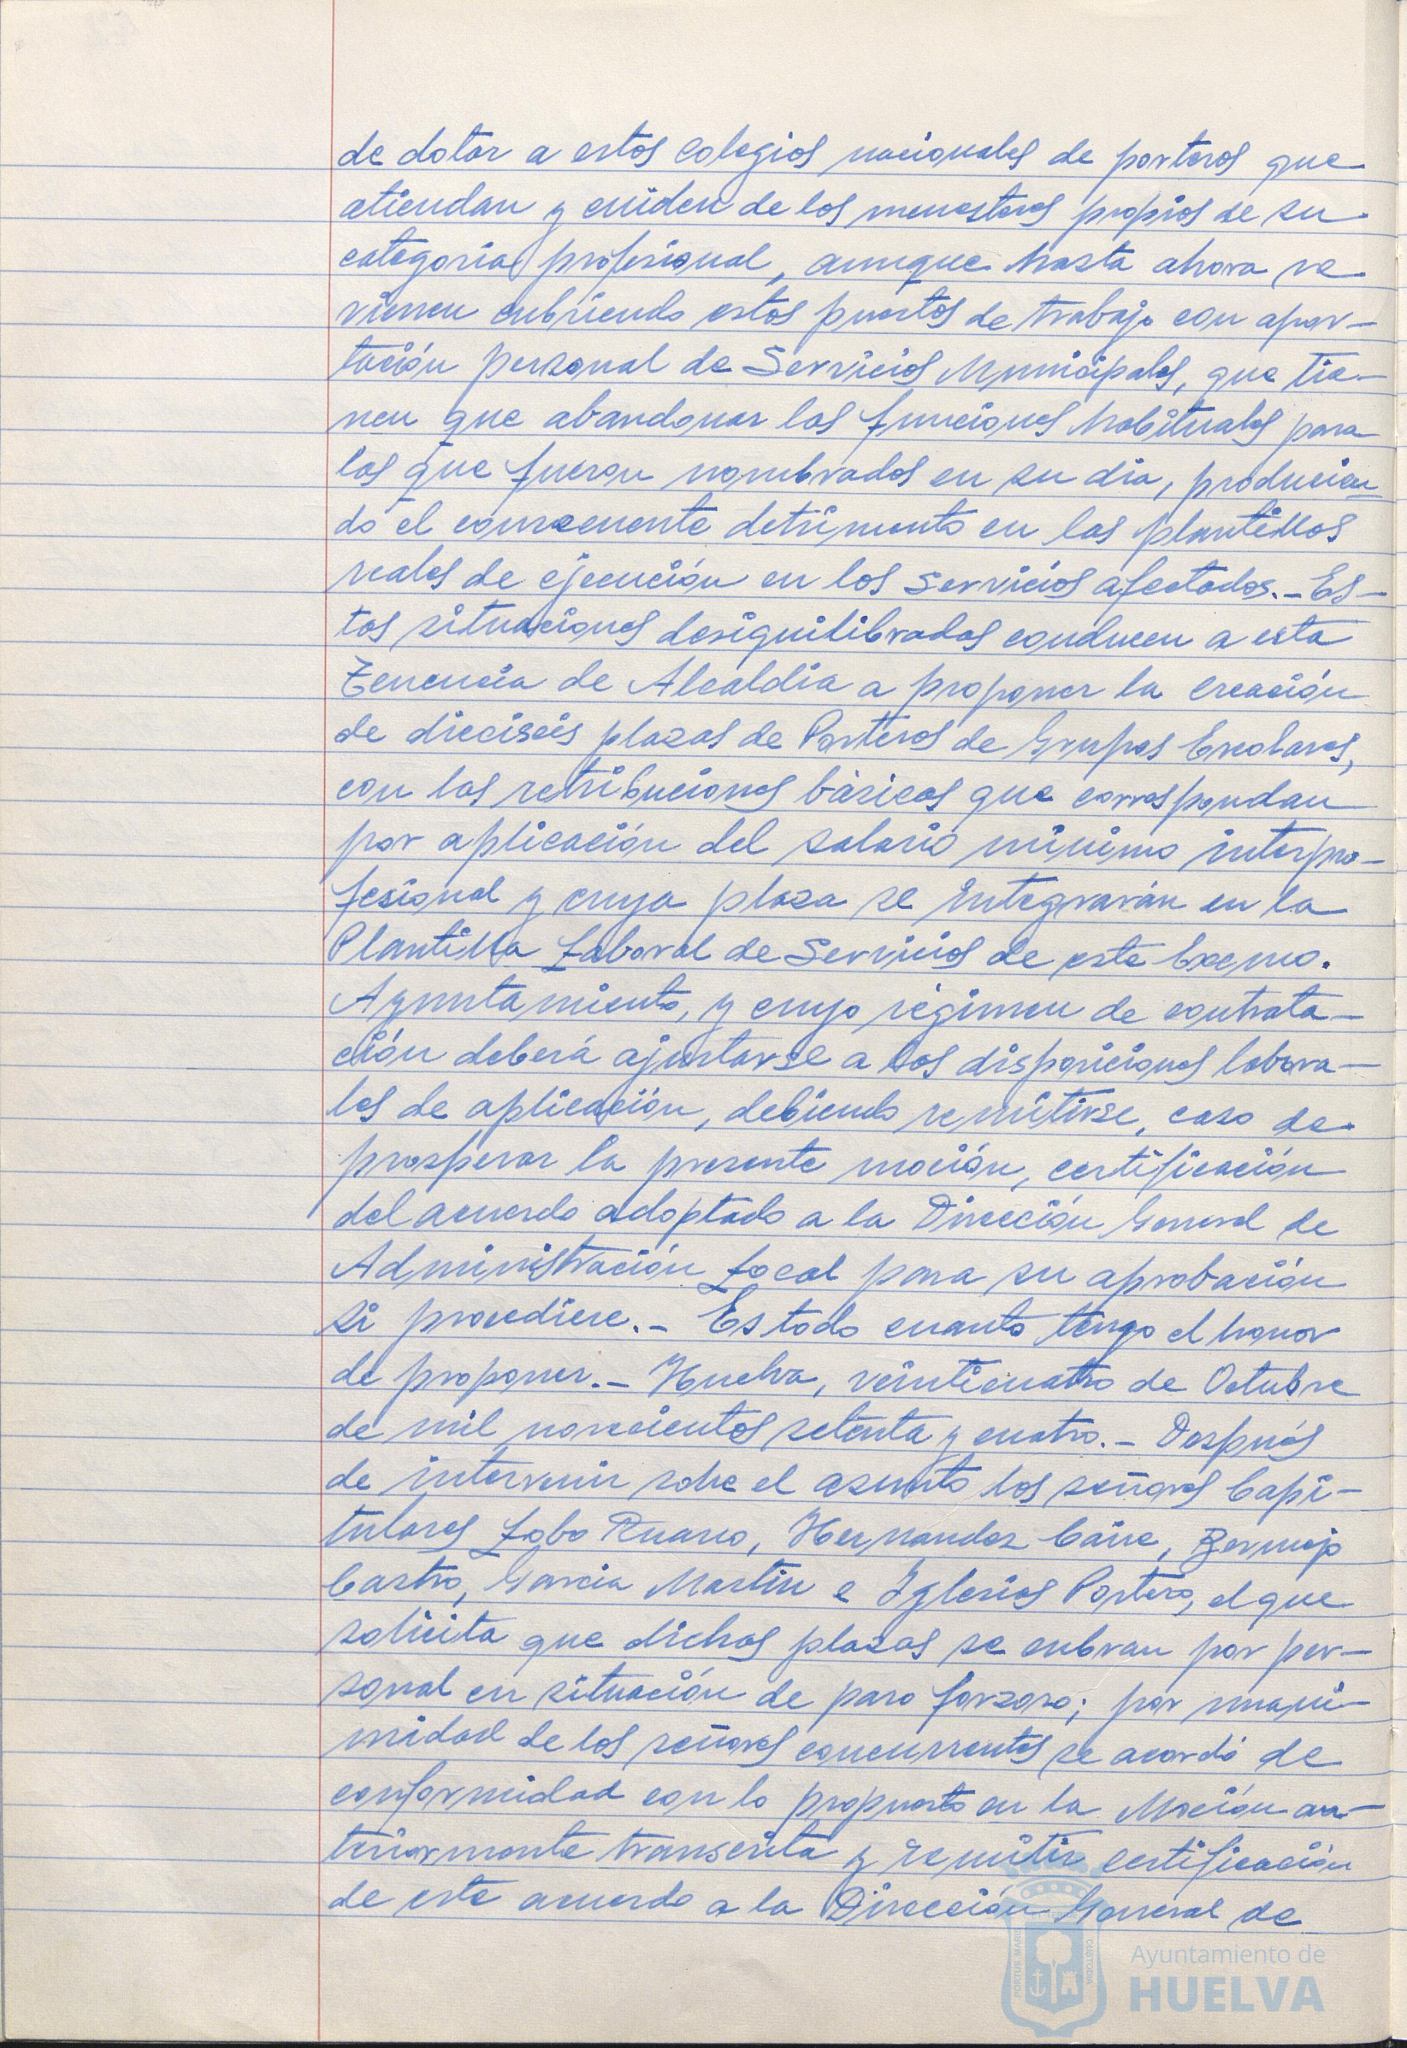 de dotar a estos Colegios nacionales de porteros que
atiendan y cuiden de los menesteres propios de su
categoría profesional, aunque hasta ahora se
vienen cubriendo estos puestos de trabajo con apor-
tación personal de Servicios Municipales, que tie-
nen que abandonar las funciones habituales para
las que fueron nombrados en su día, producien-
do el consecuente detrimento en las plantillas
reales de ejecución en los servicios afectados.- Es-
tas situaciones desiquilibradas conducen a esta
Tenencia de Alcaldía a proponer la creación
de dieciséis plazas de Porteros de Grupos Escolares,
con las retribuciones básicas que correspondan
por aplicación del salario mínimo interpro-
fesional y cuya plaza se integrarán en la
Plantilla Laboral de Servicios de este Excmo.
Ayuntamiento, y cuyo régimen de contrata-
ción deberá ajustarse a las disposiciones labora-
les de aplicación, debiendo remitirse, caso de
prosperar la presente moción, certificación
del acuerdo adoptado a la Dirección General de
Administración Local para su aprobación
si procediere.- Es todo cuanto tengo el honor
de proponer.- Huelva, veinticuatro de Octubre
de mil novecientos setenta y cuatro.- Después
de intervenir sobre el asunto los señores Capi-
tulares Lobo Ruano, Hernandez Cañe, Bermejo
Castro, García Martín e Iglesias Portero, el que
solicita que dichas plazas se cubran por per-
sonal en situación de paro forzoso; por unani-
midad de los señores concurrentes se acordó de
conformidad con lo propuesto en la Moción an-
teriormente transcrita y remitir certificación
de este acuerdo a la Dirección General de
PORTUS MARIS CUSTODIA
Ayuntamiento de
HUELVA